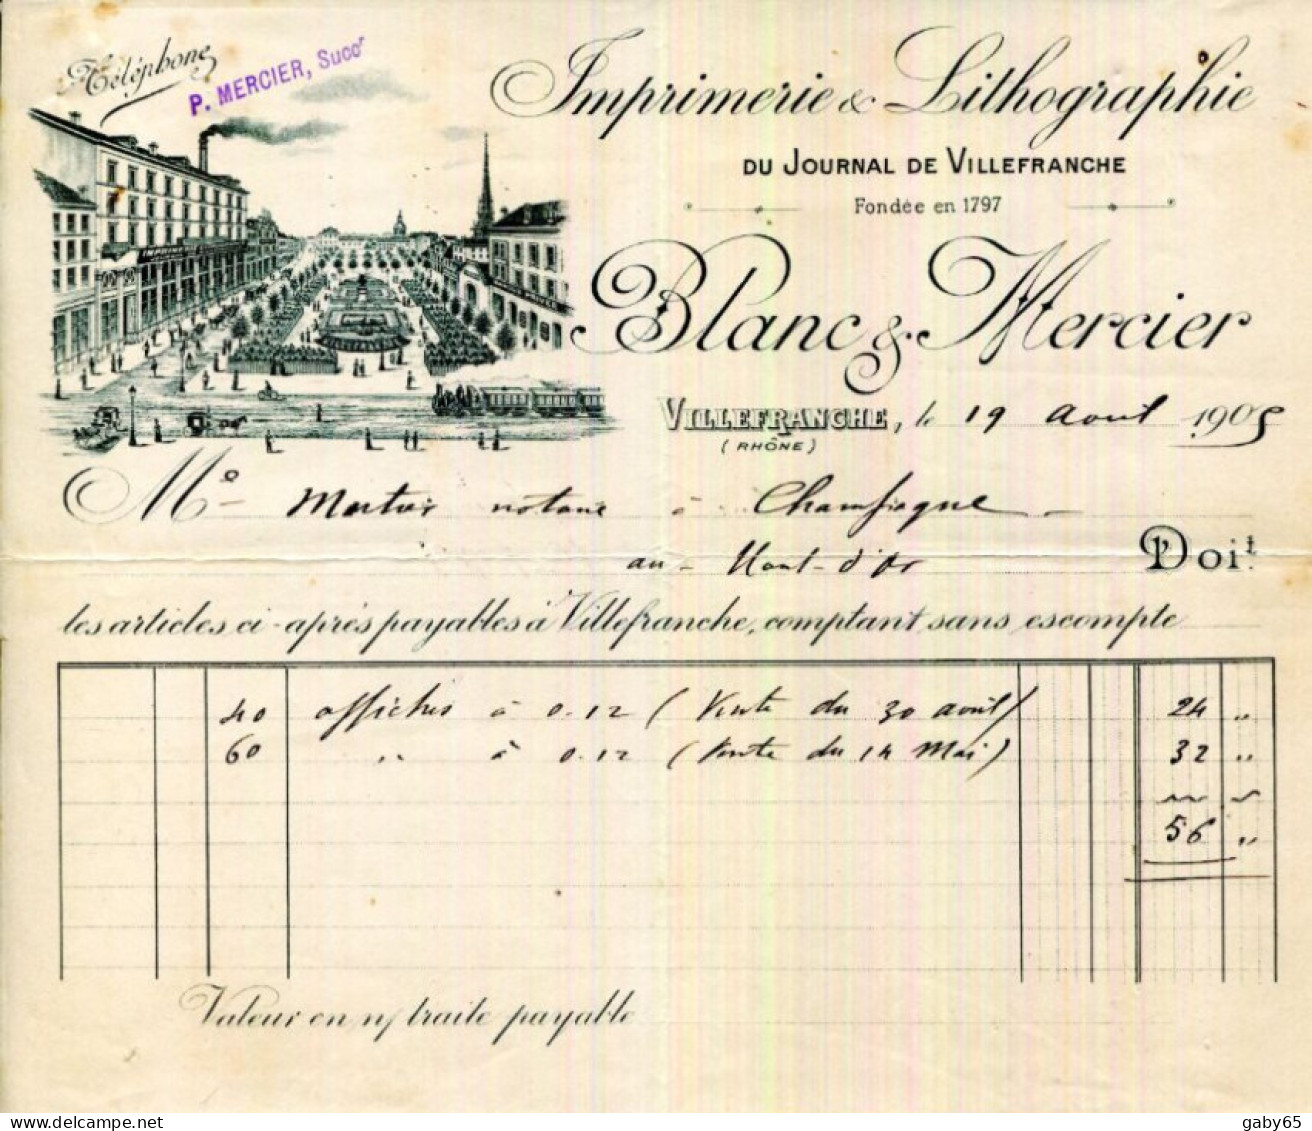 Téléphone
P. MERCIER, Succr
Imprimerie & Lithographie
DU JOURNAL DE VILLEFRANCHE
Fondée en 1797
Blanc & Mercier
VILLEFRANCHE, le 19 Avril 1905
(RHÔNE)
Me notaire à Champagne
au Mont-d'Or Doit
les articles ci-après payables à Villefranche, comptant sans escompte
40 affiches à 0.12 (Vente du 30 avril) 24 "
60 " à 0.12 (Vente du 14 Mai) 32 "
56 "
Valeur en n/ traite payable
gaby65